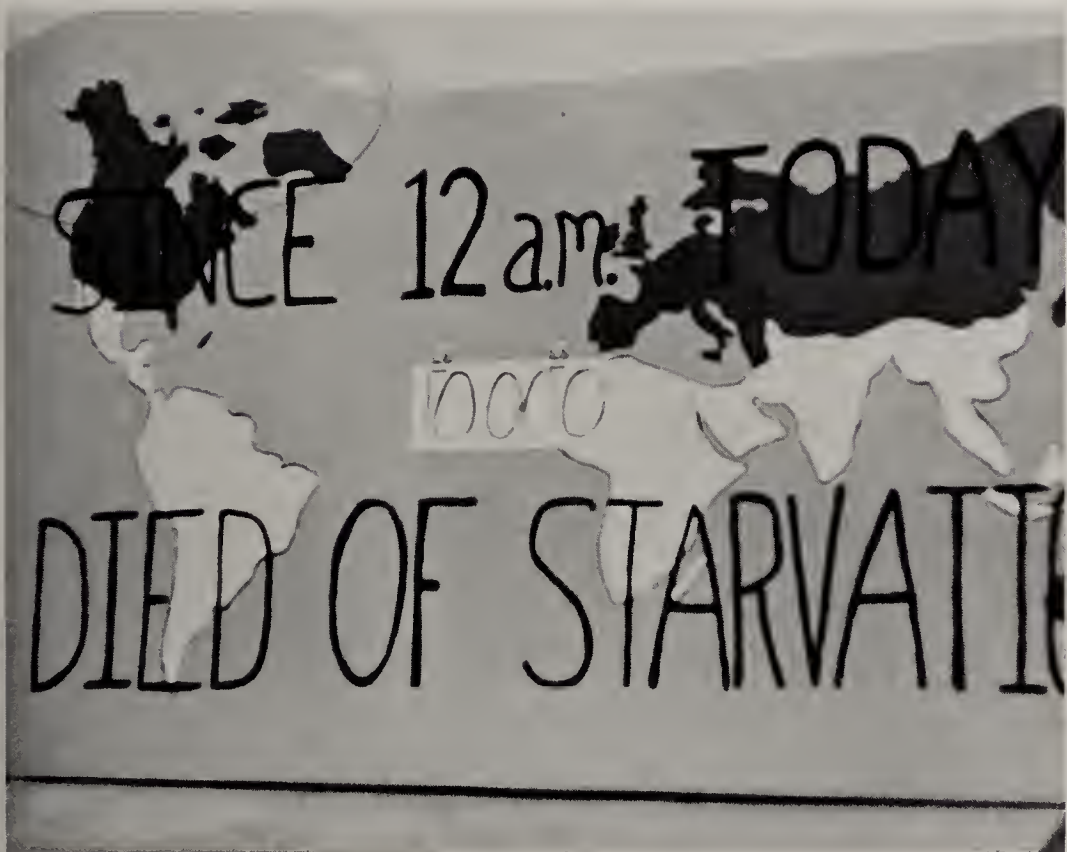 SINCE 12 a.m. TODAY
DIED OF STARVATIO